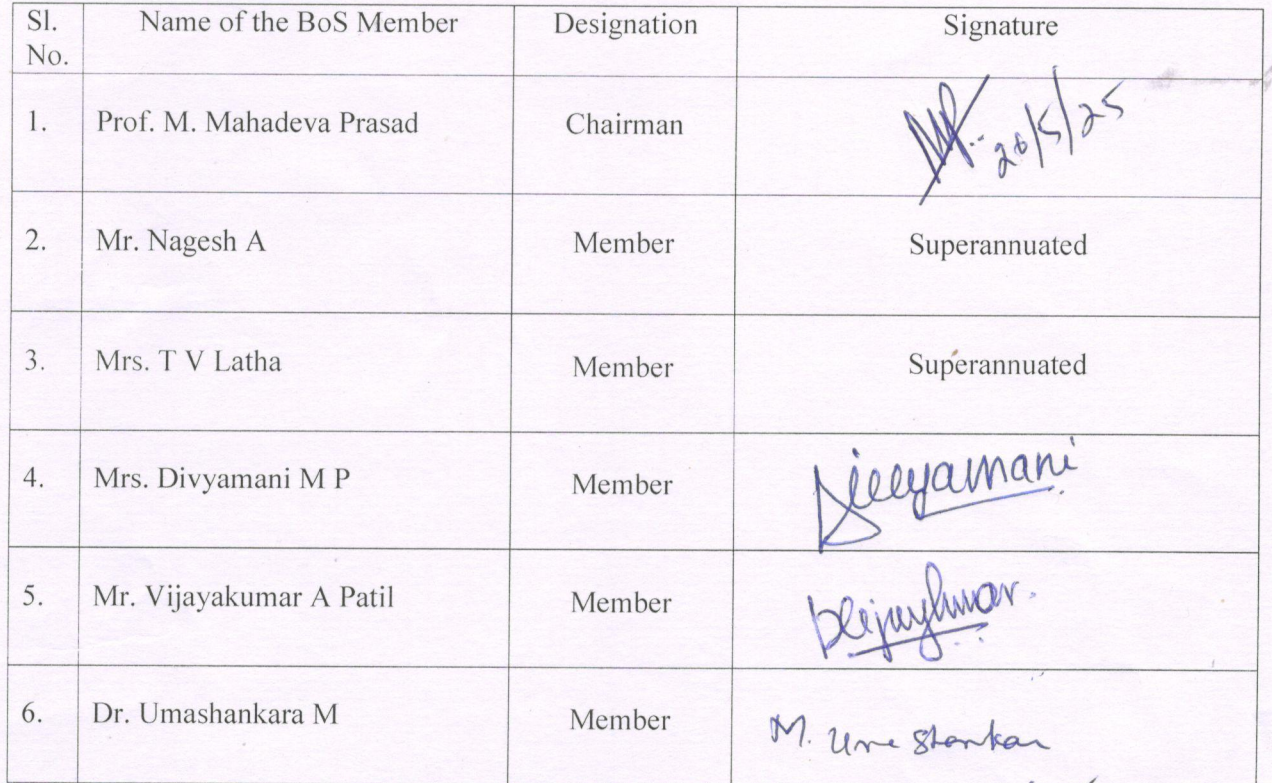 Sl. No. Name of the BoS Member Designation Signature
1. Prof. M. Mahadeva Prasad Chairman 20/5/25
2. Mr. Nagesh A Member Superannuated
3. Mrs. T V Latha Member Superannuated
4. Mrs. Divyamani M P Member Divyamani
5. Mr. Vijayakumar A Patil Member
6. Dr. Umashankara M Member M. Umashankar